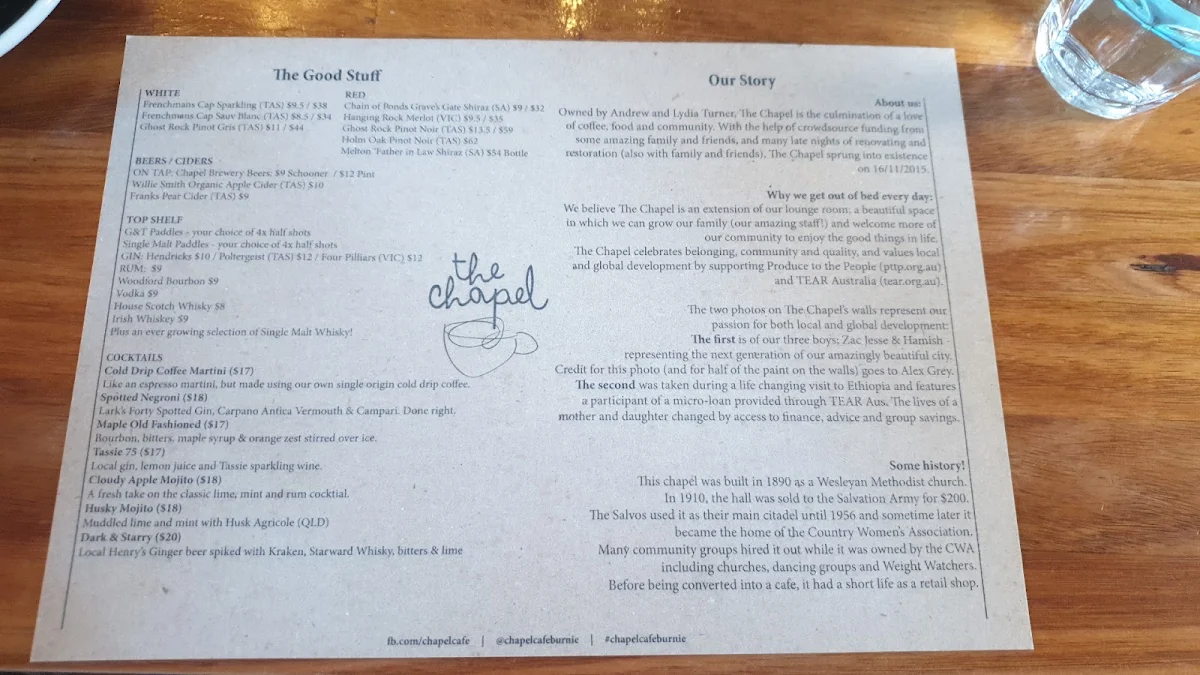 The Good Stuff
WHITE
Frenchmans Cap Sparkling (TAS) $9.5 / $38
Frenchmans Cap Sauv Blanc (TAS) $8.5 / $34
Ghost Rock Pinot Gris (TAS) $11 / $44
RED
Chain of Ponds Grave's Gate Shiraz (SA) $9 / $32
Hanging Rock Merlot (VIC) $9.5 / $35
Ghost Rock Pinot Noir (TAS) $13.5 / $59
Holm Oak Pinot Noir (TAS) $62
Melton 'Father in Law Shiraz (SA) $54 Bottle
BEERS / CIDERS
ON TAP: Chapel Brewery Beers: $9 Schooner / $12 Pint
Willie Smith Organic Apple Cider (TAS) $10
Franks Pear Cider (TAS) $9
TOP SHELF
G&T Paddles - your choice of 4x half shots
Single Malt Paddles - your choice of 4x half shots
GIN: Hendricks $10 / Poltergeist (TAS) $12 / Four Pilliars (VIC) $12
RUM: $9
Woodford Bourbon $9
Vodka $9
House Scotch Whisky $8
Irish Whiskey $9
Plus an ever growing selection of Single Malt Whisky!
COCKTAILS
Cold Drip Coffee Martini ($17)
Like an espresso martini, but made using our own single origin cold drip coffee.
Spotted Negroni ($18)
Lark's Forty Spotted Gin, Carpano Antica Vermouth & Campari. Done right.
Maple Old Fashioned ($17)
Bourbon, bitters, maple syrup & orange zest stirred over ice.
Tassie 75 ($17)
Local gin, lemon juice and Tassie sparkling wine.
Cloudy Apple Mojito ($18)
A fresh take on the classic lime, mint and rum cocktial.
Husky Mojito ($18)
Muddled lime and mint with Husk Agricole (QLD)
Dark & Starry ($20)
Local Henry's Ginger beer spiked with Kraken, Starward Whisky, bitters & lime
the
chapel
Our Story
About us:
Owned by Andrew and Lydia Turner, The Chapel is the culmination of a love
of coffee, food and community. With the help of crowdsource funding from
some amazing family and friends, and many late nights of renovating and
restoration (also with family and friends), The Chapel sprung into existence
on 16/11/2015.
Why we get out of bed every day:
We believe The Chapel is an extension of our lounge room; a beautiful space
in which we can grow our family (our amazing staff!) and welcome more of
our community to enjoy the good things in life.
The Chapel celebrates belonging, community and quality, and values local
and global development by supporting Produce to the People (pttp.org.au)
and TEAR Australia (tear.org.au).
The two photos on The Chapel's walls represent our
passion for both local and global development:
The first is of our three boys; Zac Jesse & Hamish -
representing the next generation of our amazingly beautiful city.
Credit for this photo (and for half of the paint on the walls) goes to Alex Grey.
The second was taken during a life changing visit to Ethiopia and features
a participant of a micro-loan provided through TEAR Aus. The lives of a
mother and daughter changed by access to finance, advice and group savings.
Some history!
This chapel was built in 1890 as a Wesleyan Methodist church.
In 1910, the hall was sold to the Salvation Army for $200.
The Salvos used it as their main citadel until 1956 and sometime later it
became the home of the Country Women's Association.
Many community groups hired it out while it was owned by the CWA
including churches, dancing groups and Weight Watchers.
Before being converted into a cafe, it had a short life as a retail shop.
fb.com/chapelcafe | @chapelcafeburnie | #chapelcafeburnie